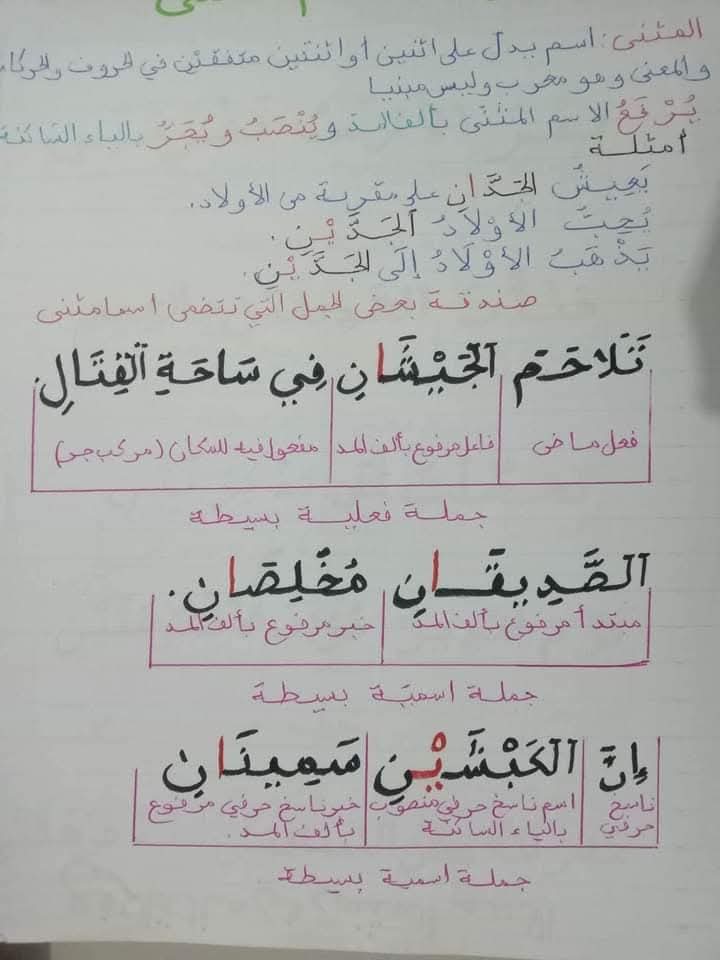 المثنى: اسم يدل على اثنين أو اثنتين متفقين في الحروف والحركات
والمعنى وهو معرب وليس مبنيا
يُرْفَعُ الاسم المثنّى بألف المد ويُنْصَبُ ويُجَرُّ بالياء الساكنة
أمثلة
يَعِيشُ الجَدَّانِ على مقربة من الأولاد.
يُحِبُّ الأَوْلَادُ الجَدَّيْنِ.
يَذْهَبُ الأَوْلَادُ إِلَى الجَدَّيْنِ.
بعض الجمل التي تتضمن اسما مثنى
تَلَاحَمَ الجَيْشَانِ فِي سَاحَةِ القِتَالِ.
فعل ماضي فاعل مرفوع بألف المد مفعول فيه للمكان (مركب جر)
جملة فعلية بسيطة
الصَّدِيقَانِ مُخْلِصَانِ.
مبتدأ مرفوع بألف المد خبر مرفوع بألف المد
جملة اسمية بسيطة
إِنَّ الكَبْشَيْنِ سَمِينَانِ
ناسخ حرفي اسم ناسخ حرفي منصوب بالياء الساكنة خبر ناسخ حرفي مرفوع بألف المد.
جملة اسمية بسيطة